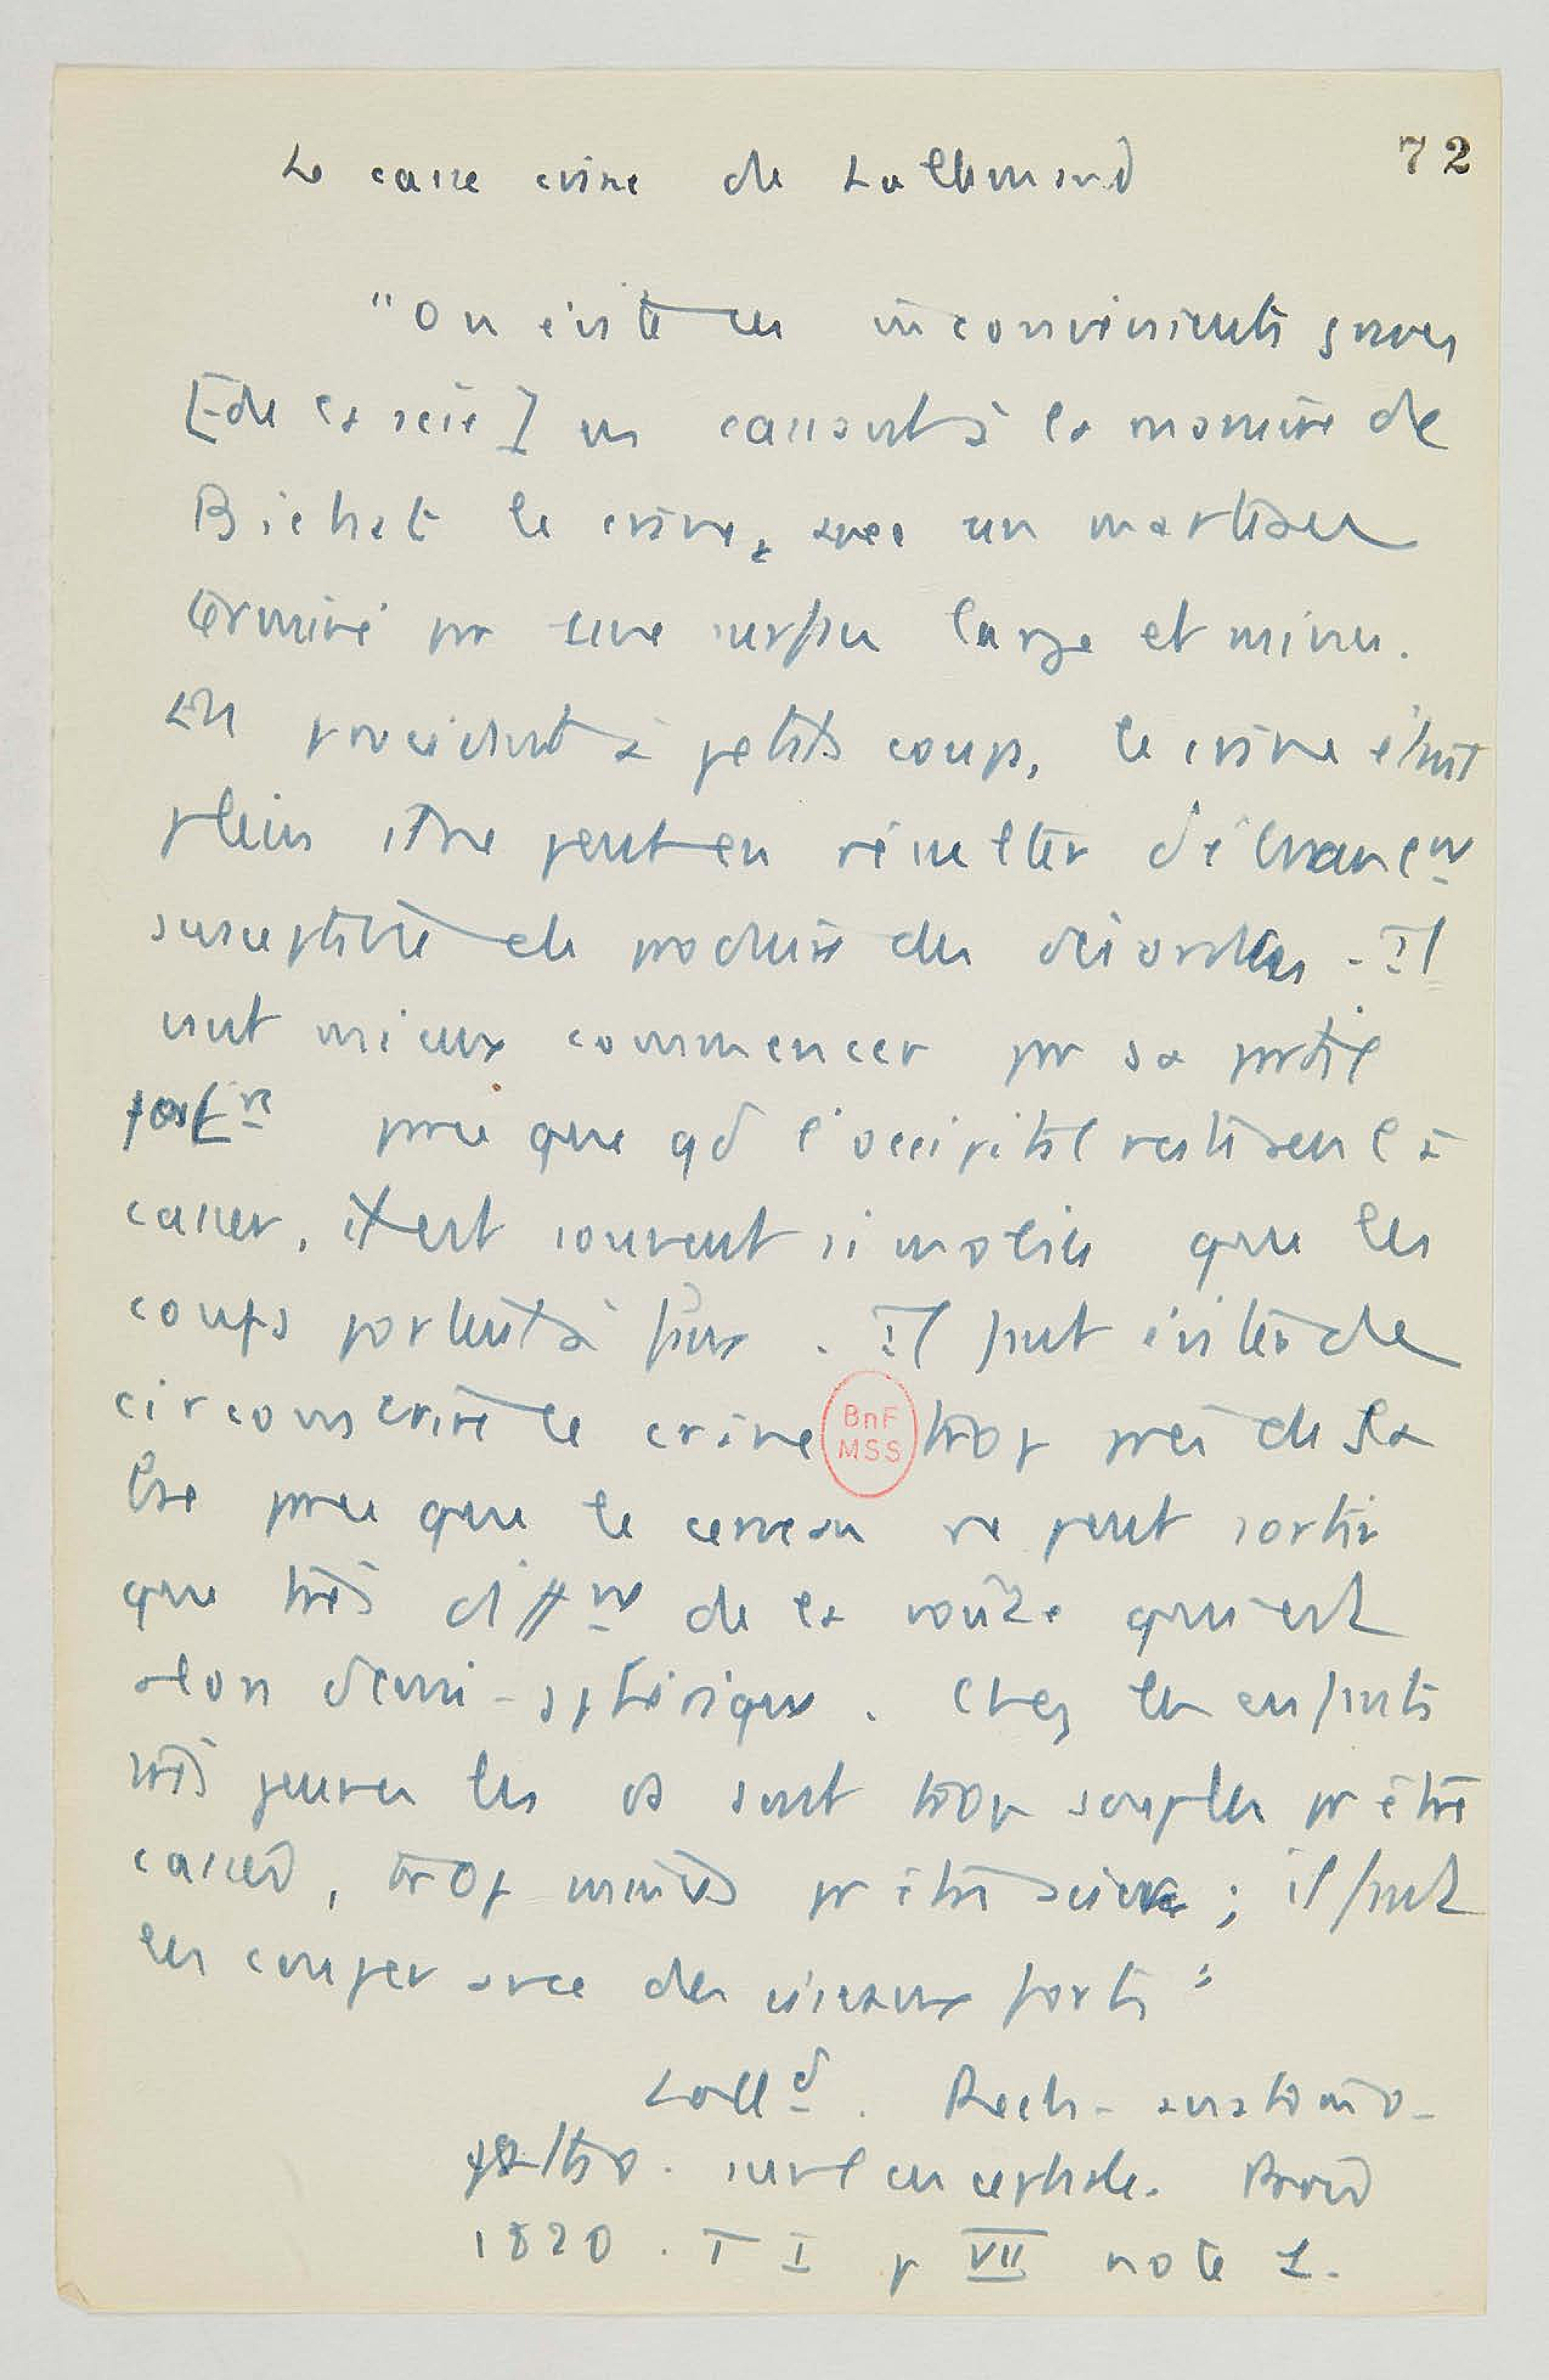 72
Le casse crâne de Lallemand
"On évite ces inconvénients graves
[de la scie] en cassant à la manière de
Bichat le crâne, avec un marteau
terminé pr une surface large et mince.
En procédant à petits coups, le crâne étant
plein il ne peut en résulter d'ébranlent
susceptible de produire des désordres. Il
vaut mieux commencer pr sa partie
postre parce que qd l'occipital reste seul à
casser, il est souvent si mobile que les
coups portent à faux. Il faut éviter de
circonscrire le crâne trop près de sa
base parce que le cerveau ne peut sortir
que très difft de la voûte qui est
alors demi-sphérique. Chez les enfants
très jeunes les os sont trop souples pr être
cassés, trop minces pr être sciés ; il faut
les couper avec des ciseaux forts"
Lalld. Rech. anatomo-
patho. sur l'encéphale.
1820. T I p VII note 1.
BnF
MSS